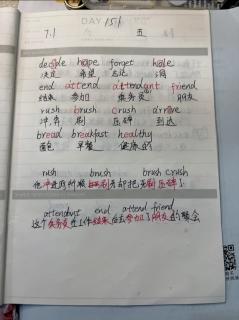 DAY 151
7.1 五
decide hope forget hole
决定 希望 忘记 洞
end attend attendant friend
结束 参加 服务员 朋友
rush brush crush arrive
冲,奔 刷 压碎 到达
bread breakfast healthy
面包 早餐 健康的
rush brush brush crush
他冲进厕所刷牙却把牙刷压碎了
attendant end attend friend
这个服务员在工作结束后去参加了朋友的聚会